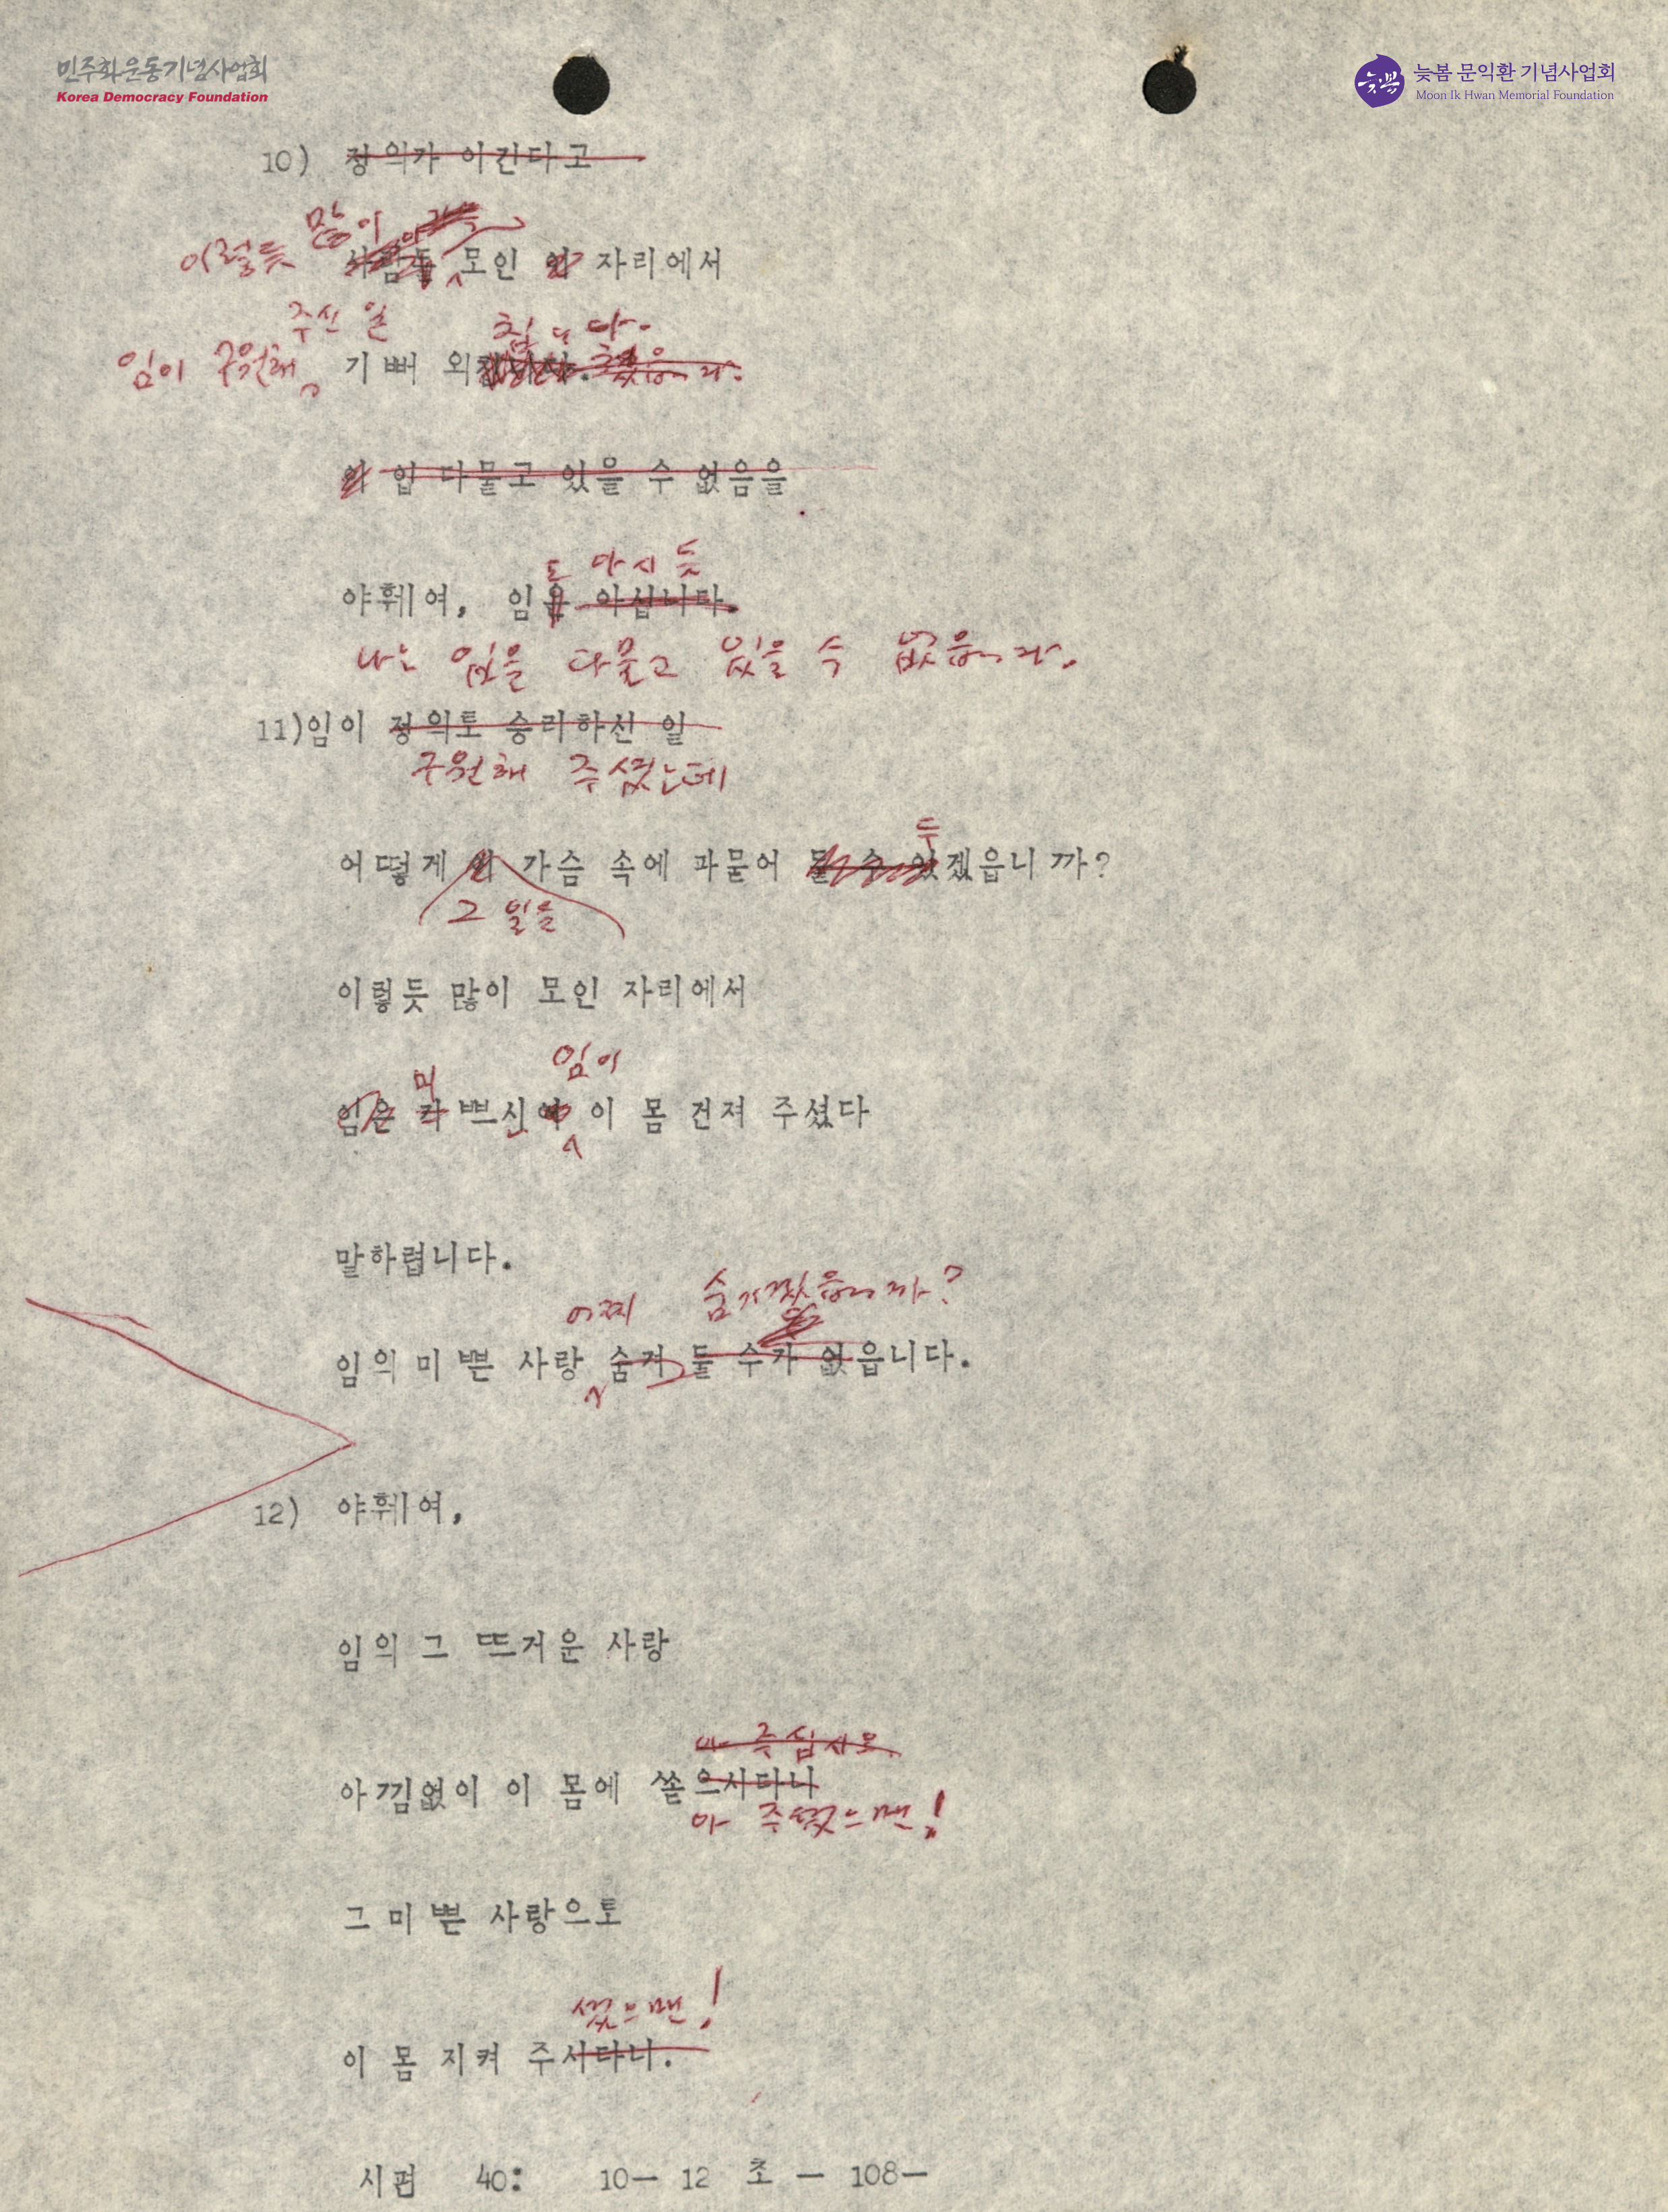 민주화운동기념사업회
Korea Democracy Foundation
늦봄
늦봄 문익환 기념사업회
Moon Ik Hwan Memorial Foundation
10) 정의가 이긴다고
이렇듯 많이
사람들 모인 이 자리에서
주신 일
칩니다.
임이 구원해
기뻐 외
입 다물고 있을 수 없음을
도 다시 듯
야훼여, 임은 아십니다.
나는 입을 다물고 있을 수 없읍니다.
11)임이 정의로 승리하신 일
구원해 주셨는데
두
어떻게 이 가슴 속에 파묻어 둘 수 있겠읍니까?
그 일을
이렇듯 많이 모인 자리에서
임이
미
임은 쁘신 이 몸 건져 주셨다
말하렵니다.
어찌 숨기겠읍니까?
임의 미쁜 사랑 숨겨 둘 수가 없읍니다.
12) 야훼여,
임의 그 뜨거운 사랑
아 주십시오.
아낌없이 이 몸에 쏟으시다니
아 주셨으맨!
그 미쁜 사랑으로
셨으맨!
이 몸 지켜 주시다니.
시편 40: 10- 12 초 - 108-